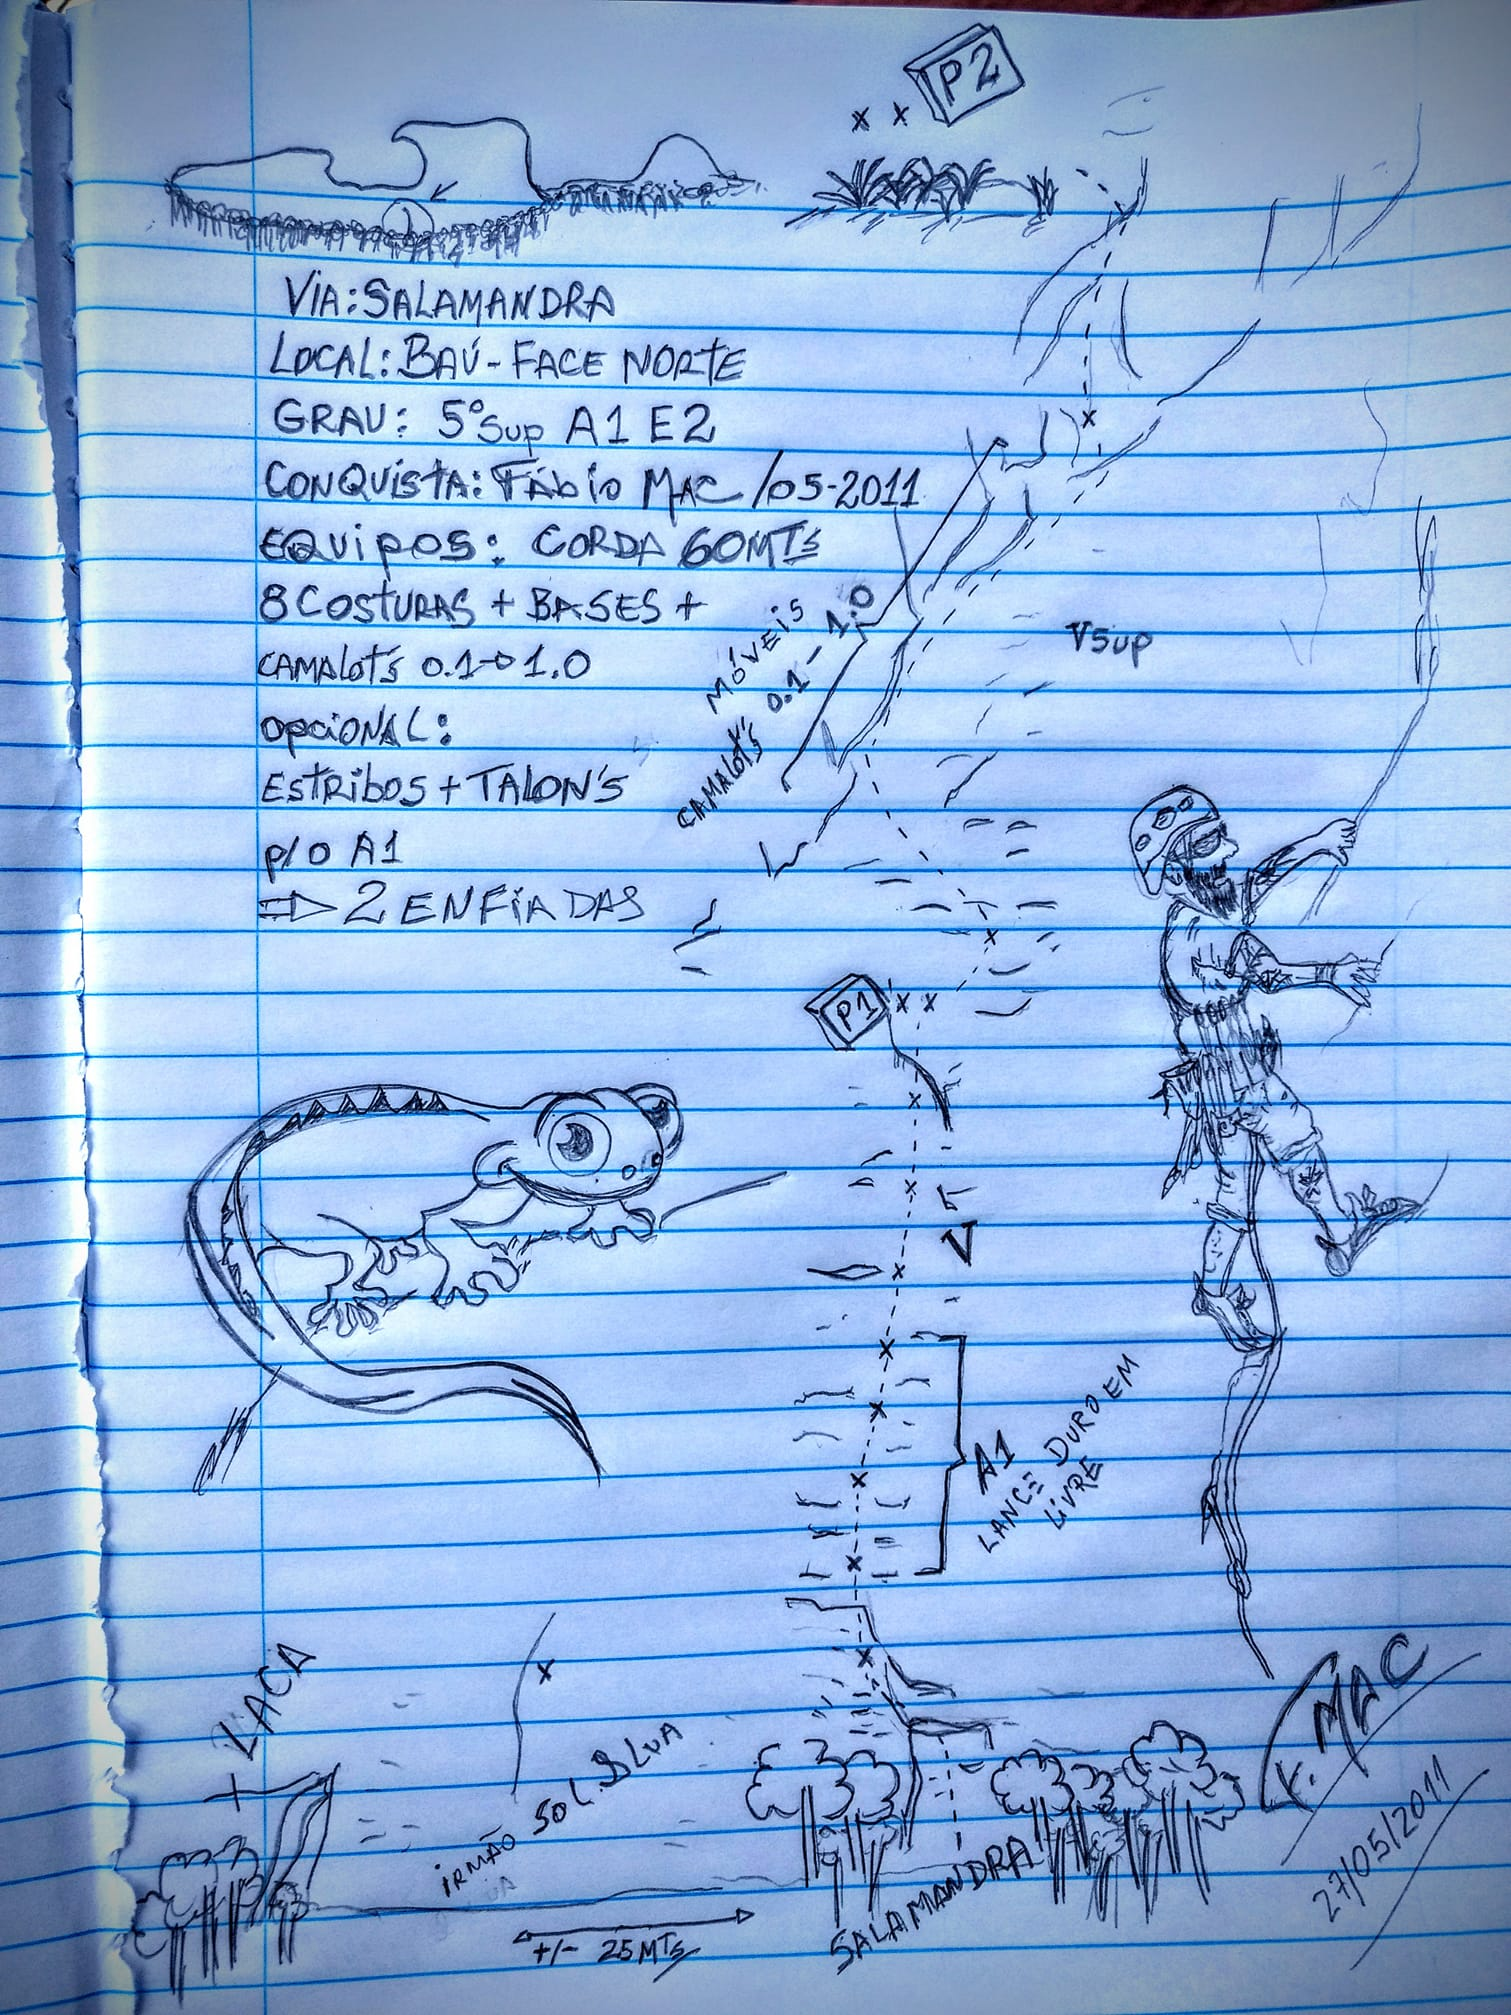 P2
VIA: SALAMANDRA
LOCAL: BAÚ - FACE NORTE
GRAU: 5º SUP A1 E2
CONQUISTA: FÁBIO MAC /05-2011
EQUIPOS: CORDA 60MTS
8 COSTURAS + BASES +
CAMALOT'S 0.1→1.0
OPCIONAL:
ESTRIBOS + TALON'S
P/O A1
⇒ 2 ENFIADAS
MÓVEIS
CAMALOT'S 0.1 - 1.0
VSUP
P1
V
A1
LANCE DURO EM
LIVRE
LACA
IRMÃO SOL
LUA
+/- 25 MTS
SALAMANDRA
MAC
27/05/2011